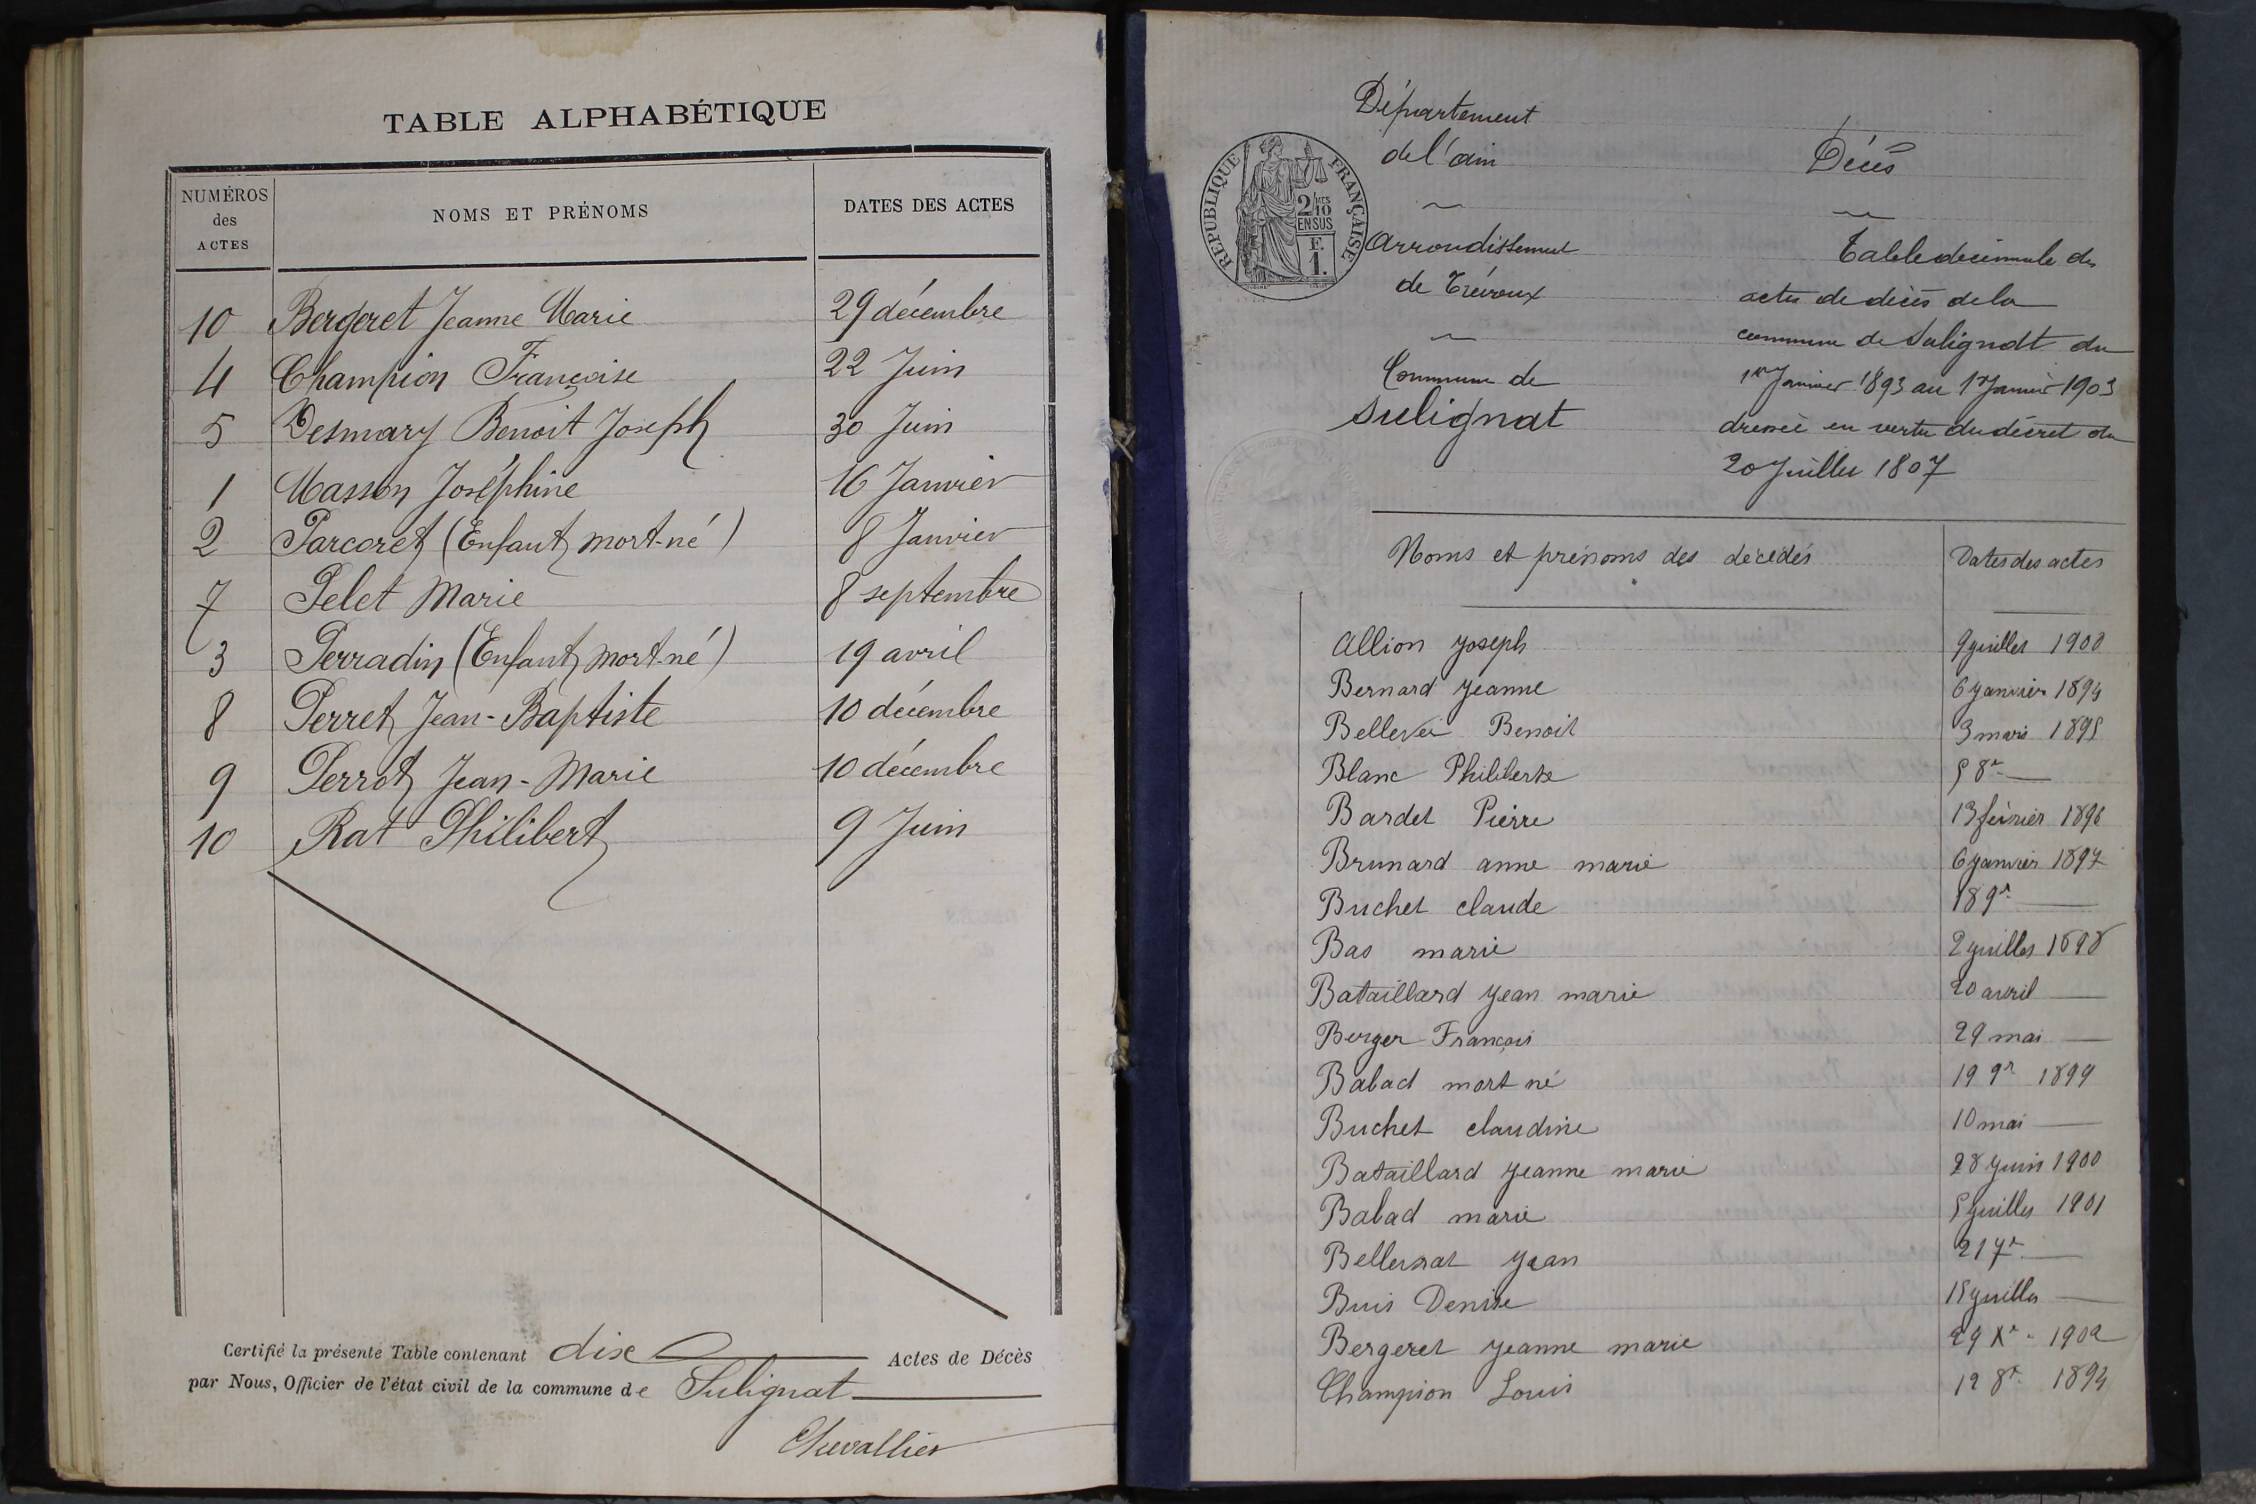 TABLE ALPHABÉTIQUE
NUMÉROS des ACTES
NOMS ET PRÉNOMS
DATES DES ACTES
10 Bergeret Jeanne Marie 29 décembre
4 Champion Françoise 22 Juin
5 Desmary Benoit Joseph 30 Juin
1 Masson Joséphine 16 Janvier
2 Parcoret (Enfant mort-né) 8 Janvier
7 Pelet Marie 8 septembre
3 Perradin (Enfant mort-né) 19 avril
8 Perret Jean-Baptiste 10 décembre
9 Perrot Jean-Marie 10 décembre
10 Rat Philibert 9 Juin
Certifié la présente Table contenant dix Actes de Décès
par Nous, Officier de l'état civil de la commune de Sulignat
Chevallier
Département
de l'ain
Arrondissement
de Trévoux
Commune de
Sulignat
REPUBLIQUE FRANÇAISE
2/10
EN SUS
F.
1.
Décès
Table décennale des
actes de décès de la
commune de Sulignat du
1er Janvier 1893 au 1er Janvier 1903
dressée en vertu du décret du
20 Juillet 1807
Noms et prénoms des décédés Dates des actes
Allion Joseph 9 juillet 1900
Bernard Jeanne 6 janvier 1894
Benoit 3 mars 1895
Blanc Philiberte 5 8re
Bardet Pierre 13 février 1896
Brunard anne marie 6 janvier 1897
Buchet claude 18 9re
Bas marie 2 juillet 1898
Bataillard jean marie 20 avril
Berger François 29 mai
Babad mort né 19 9re 1899
Buchet claudine 10 mai
Bataillard jeanne marie 28 juin 1900
Babad marie 5 juillet 1901
jean 21 7re
Buis Denise 15 juillet
Bergeret jeanne marie 29 Xre 1902
Champion Louis 12 8re 1894